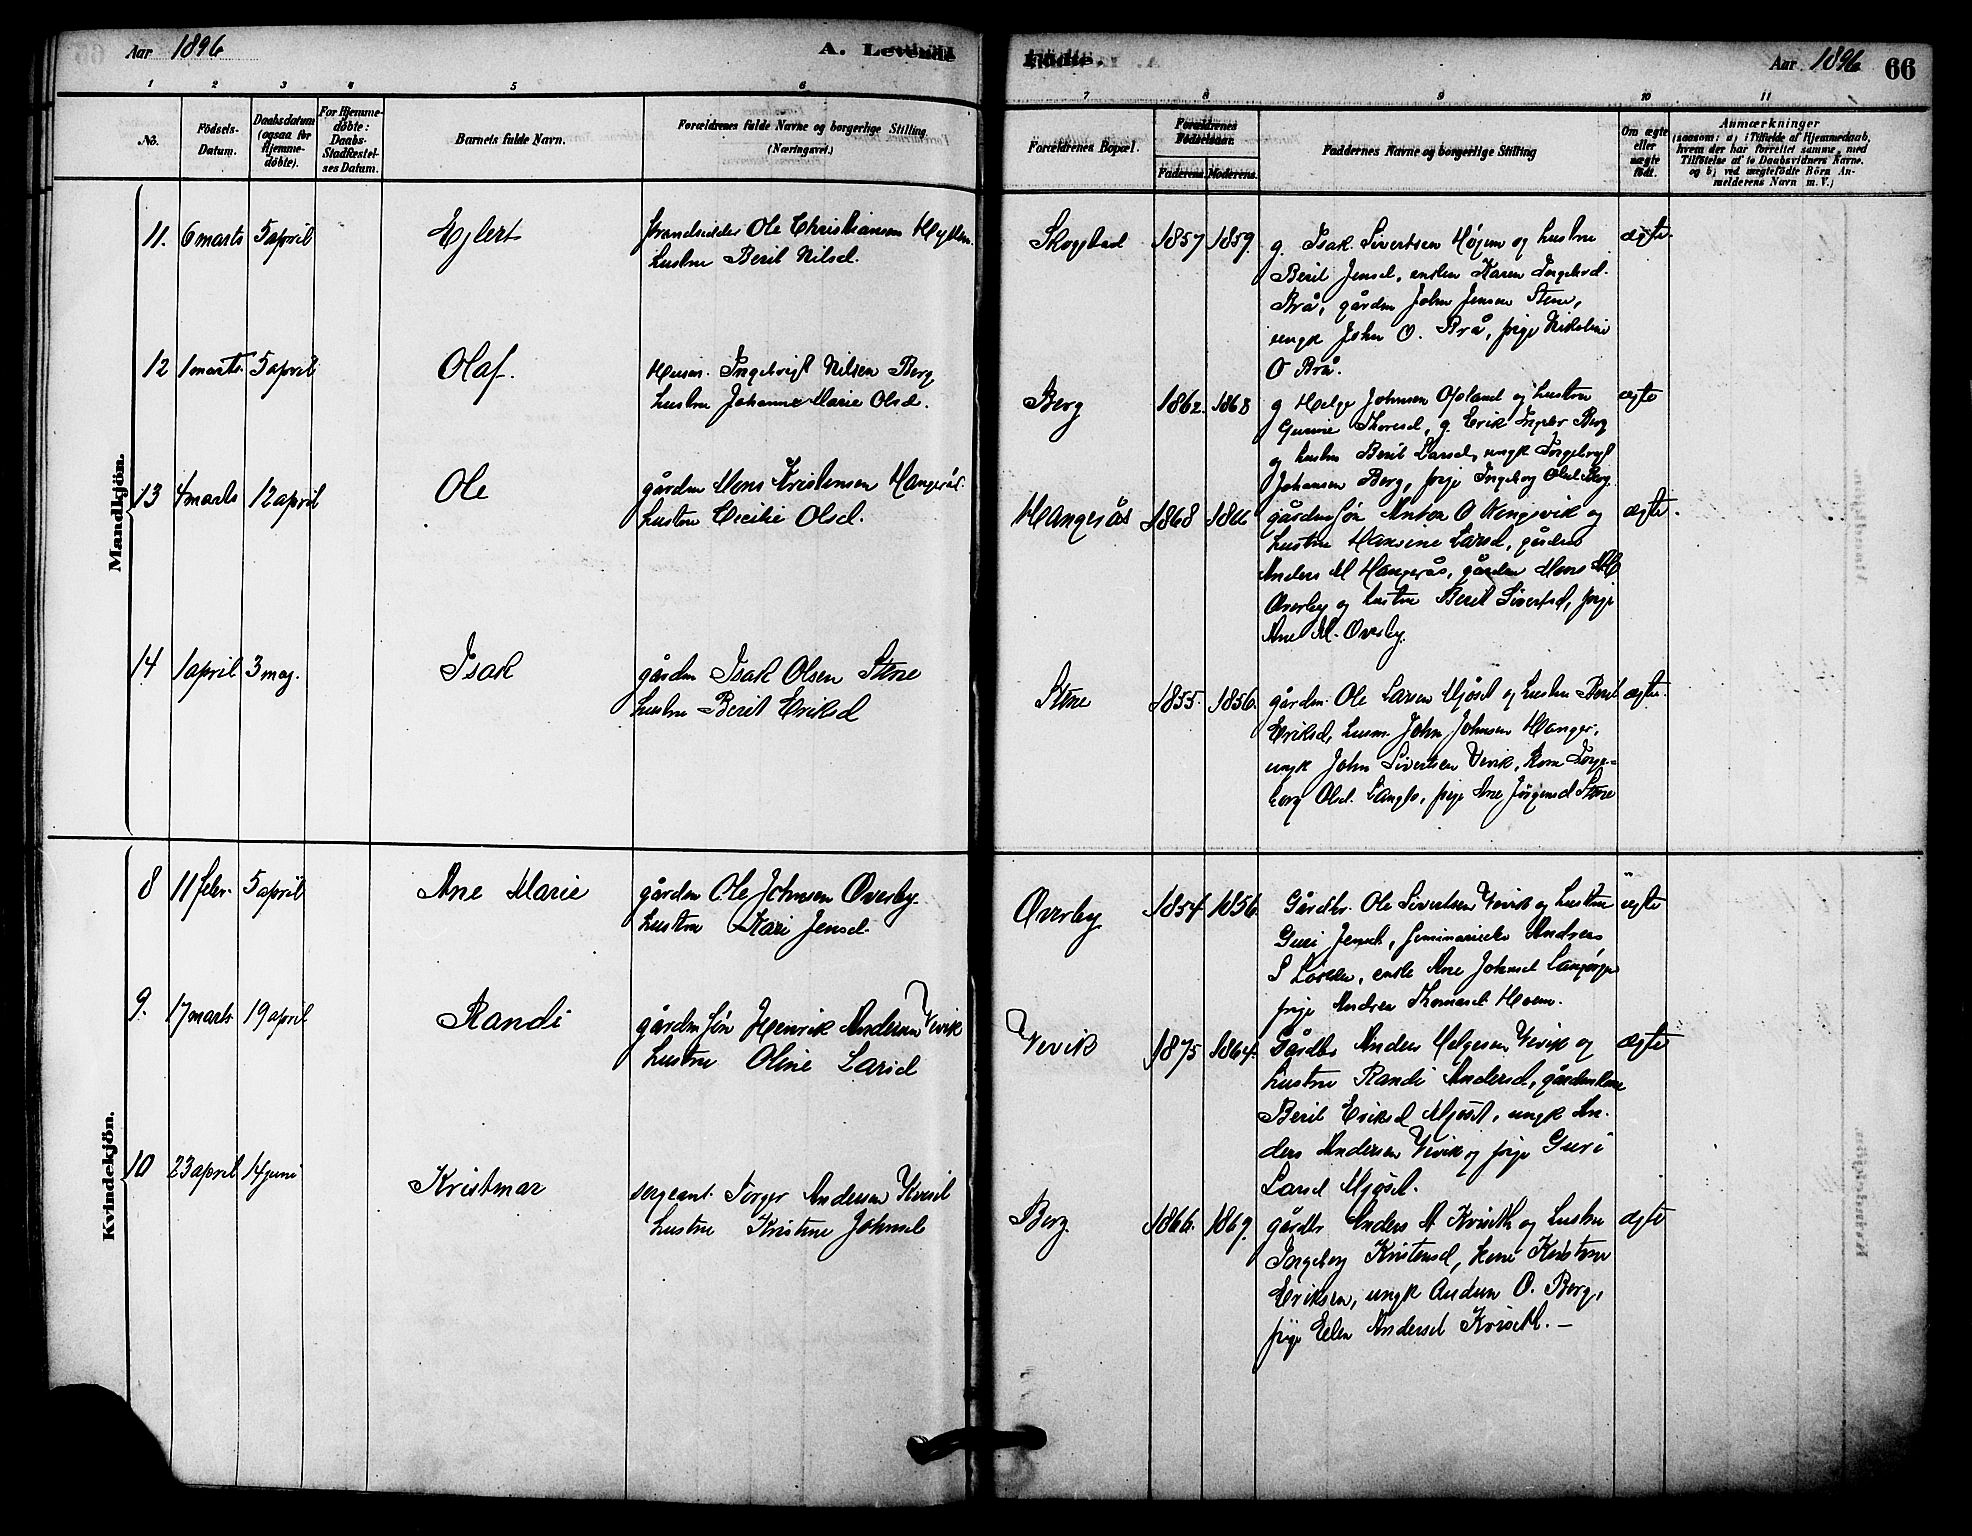 Aar 1896
A. Levende
Fødte.
Aar 1896
66
1 2 3 4 5 6 7 8 9 10 11
No.
Födsels-Datum.
Daabsdatum (ogsaa for Hjemme-döbte).
For Hjemme-döbte: Daabs-Stadfæstel-ses Datum.
Barnets fulde Navn.
Forældrenes fulde Navne og borgerlige Stilling
(Næringsvei.)
Forældrenes Bopæl.
Forældrenes Födselsaar.
Faderens. Moderens.
Faddernes Navne og borgerlige Stilling
Om ægte eller uægte födt.
Anmærkninger
(saasom: a) i Tilfælde af Hjemmedaab,
hvem der har forrettet samme, med
Tilföielse af to Daabsvidners Navne.
og b) ved uægtefödte Börn An-
melderens Navn m. V.)
Mandkjön.
11. 6 marts 5 april Ejlert
Strandsidder Ole Christiansen
hustru Berit Nilsd.
Skogstad 1857 1859.
g. Isak Sivertsen og hustru
Berit Jensd, enken Karen
Brå, gårdm John Jensen Stene,
ungk John O. Brå, pige Nikoline
O Brå.
ægte.
12 1 marts. 5 april Olaf.
Husm. Ingebrigt Nilsen Berg
hustru Johanne Marie Olsd.
Berg 1862. 1868
g Helge Johnsen Opland og hustru
Gurine Thoresd, g. Erik Berg
og hustru Berit Larsd, ungk Ingebrigt
Johansen Berg, pige Ingeborg Olsd Berg.
ægte
13 4 marts 12 april Ole
gårdm Mons Kristensen Hangerås.
hustru Cecilie Olsd.
Hangerås 1868
gårdm søn Anton O Vengsvik og
hustru Hansine Larsd, gårdm
Anders M Hangerås, gårdm Mons M
Øverby og hustru Berit Sivertsd, pige
Ane M. Øverby.
ægte.
14 1 april 3 maj. Isak
gårdm Isak Olsen Stene
hustru Berit Eriksd
Stene 1855. 1856.
gårdm. Ole Larsen Mjøset og hustru Berit
Eriksd, husm. John Johnsen Hanger,
ungk John Sivertsen Vevik, Kone Inge-
borg Olsd. Langlo, pige Ane Jørgensd Stene
ægte.
Kvindekjön.
8 11 febr. 5 april Ane Marie
gårdm Ole Johnsen Øverby
hustru Kari Jensd.
Øverby 1854. 1856.
Gårdbr. Ole Sivertsen Vevik og hustru
Guri Jensd, seminarielev Andreas
S, enke Ane Johnsd
pige Andrea Thomasd Hoem.
ægte
9. 17 marts 19 april Randi
gårdm søn Henrik Andersen Vevik
hustru Oline Larsd
Vevik 1875 1864.
Gårdbr Anders Helgesen Vevik og
hustru Randi Andersd, gårdmkone
Berit Eriksd Mjøset, ungk An-
ders Andersen Vevik og pige Guri
Larsd Mjøset.
ægte
10 23 april 14 juni Kristmar
sergeant. Torger Andersen
hustru Kristine Johnsd
Berg. 1866. 1869.
gårdbr Anders A Kviseth og hustru
Ingeborg Kristensd, kone Kristine
Eriksen, ungk Audun O. Berg,
pige Elen Andersd Kviseth. —
ægte